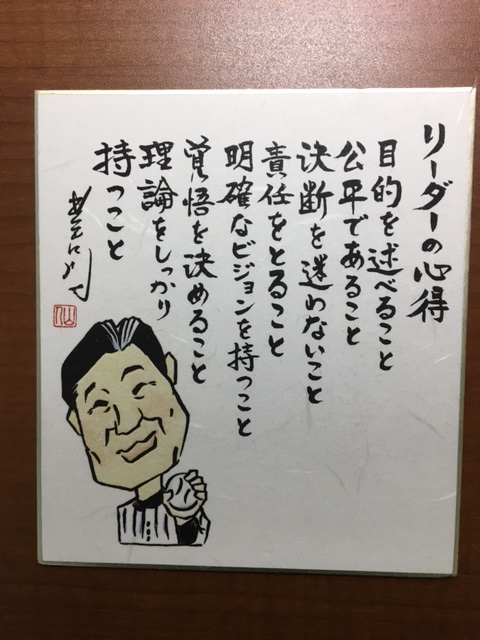 リーダーの心得
目的を述べること
公平であること
決断を迷わないこと
責任をとること
明確なビジョンを持つこと
覚悟を決めること
理論をしっかり
持つこと